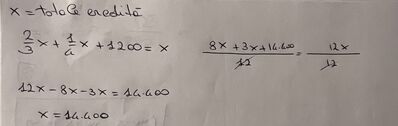 x = totale eredità
2/3 x + 1/4 x + 1200 = x
(8x + 3x + 14.400)/12 = 12x/12
12x - 8x - 3x = 14.400
x = 14.400